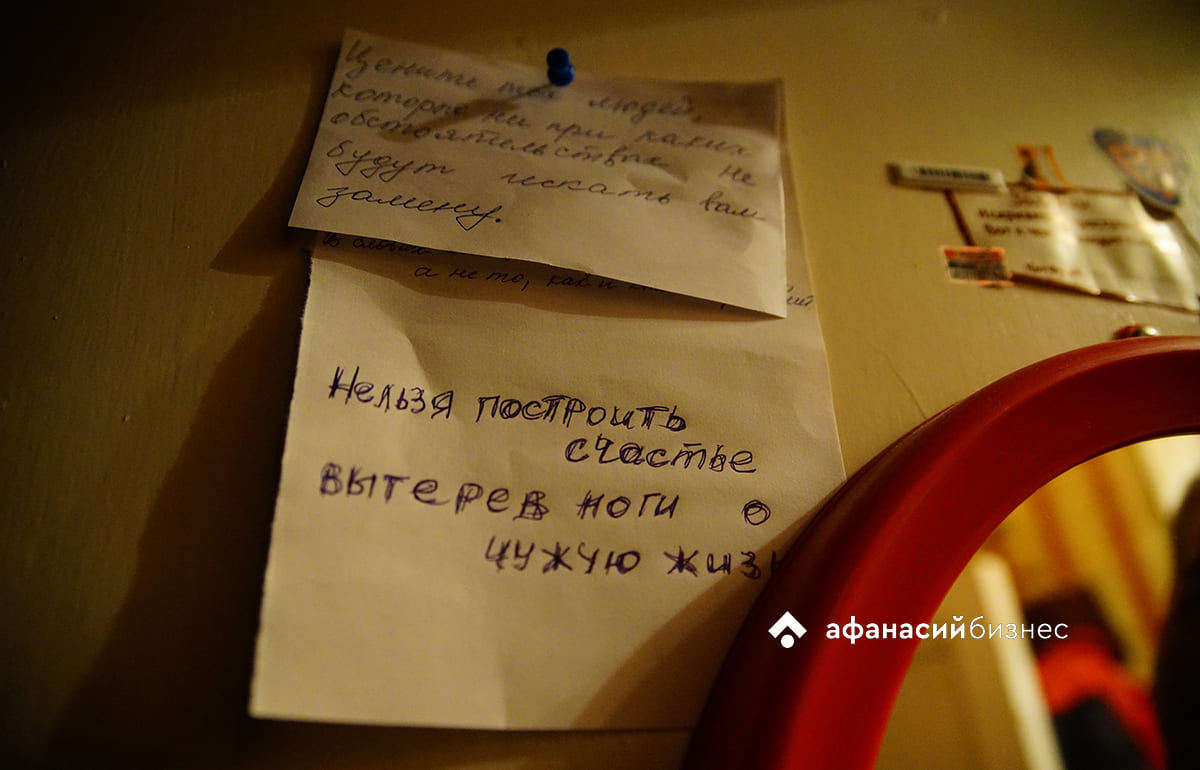 Ценити тех людей,
которые ни при каких
обстоятельствах не
будут искать вам
замену.
а не то, как и
Нельзя построить
счастье
вытерев ноги о
чужую жизн
афанасийбизнес